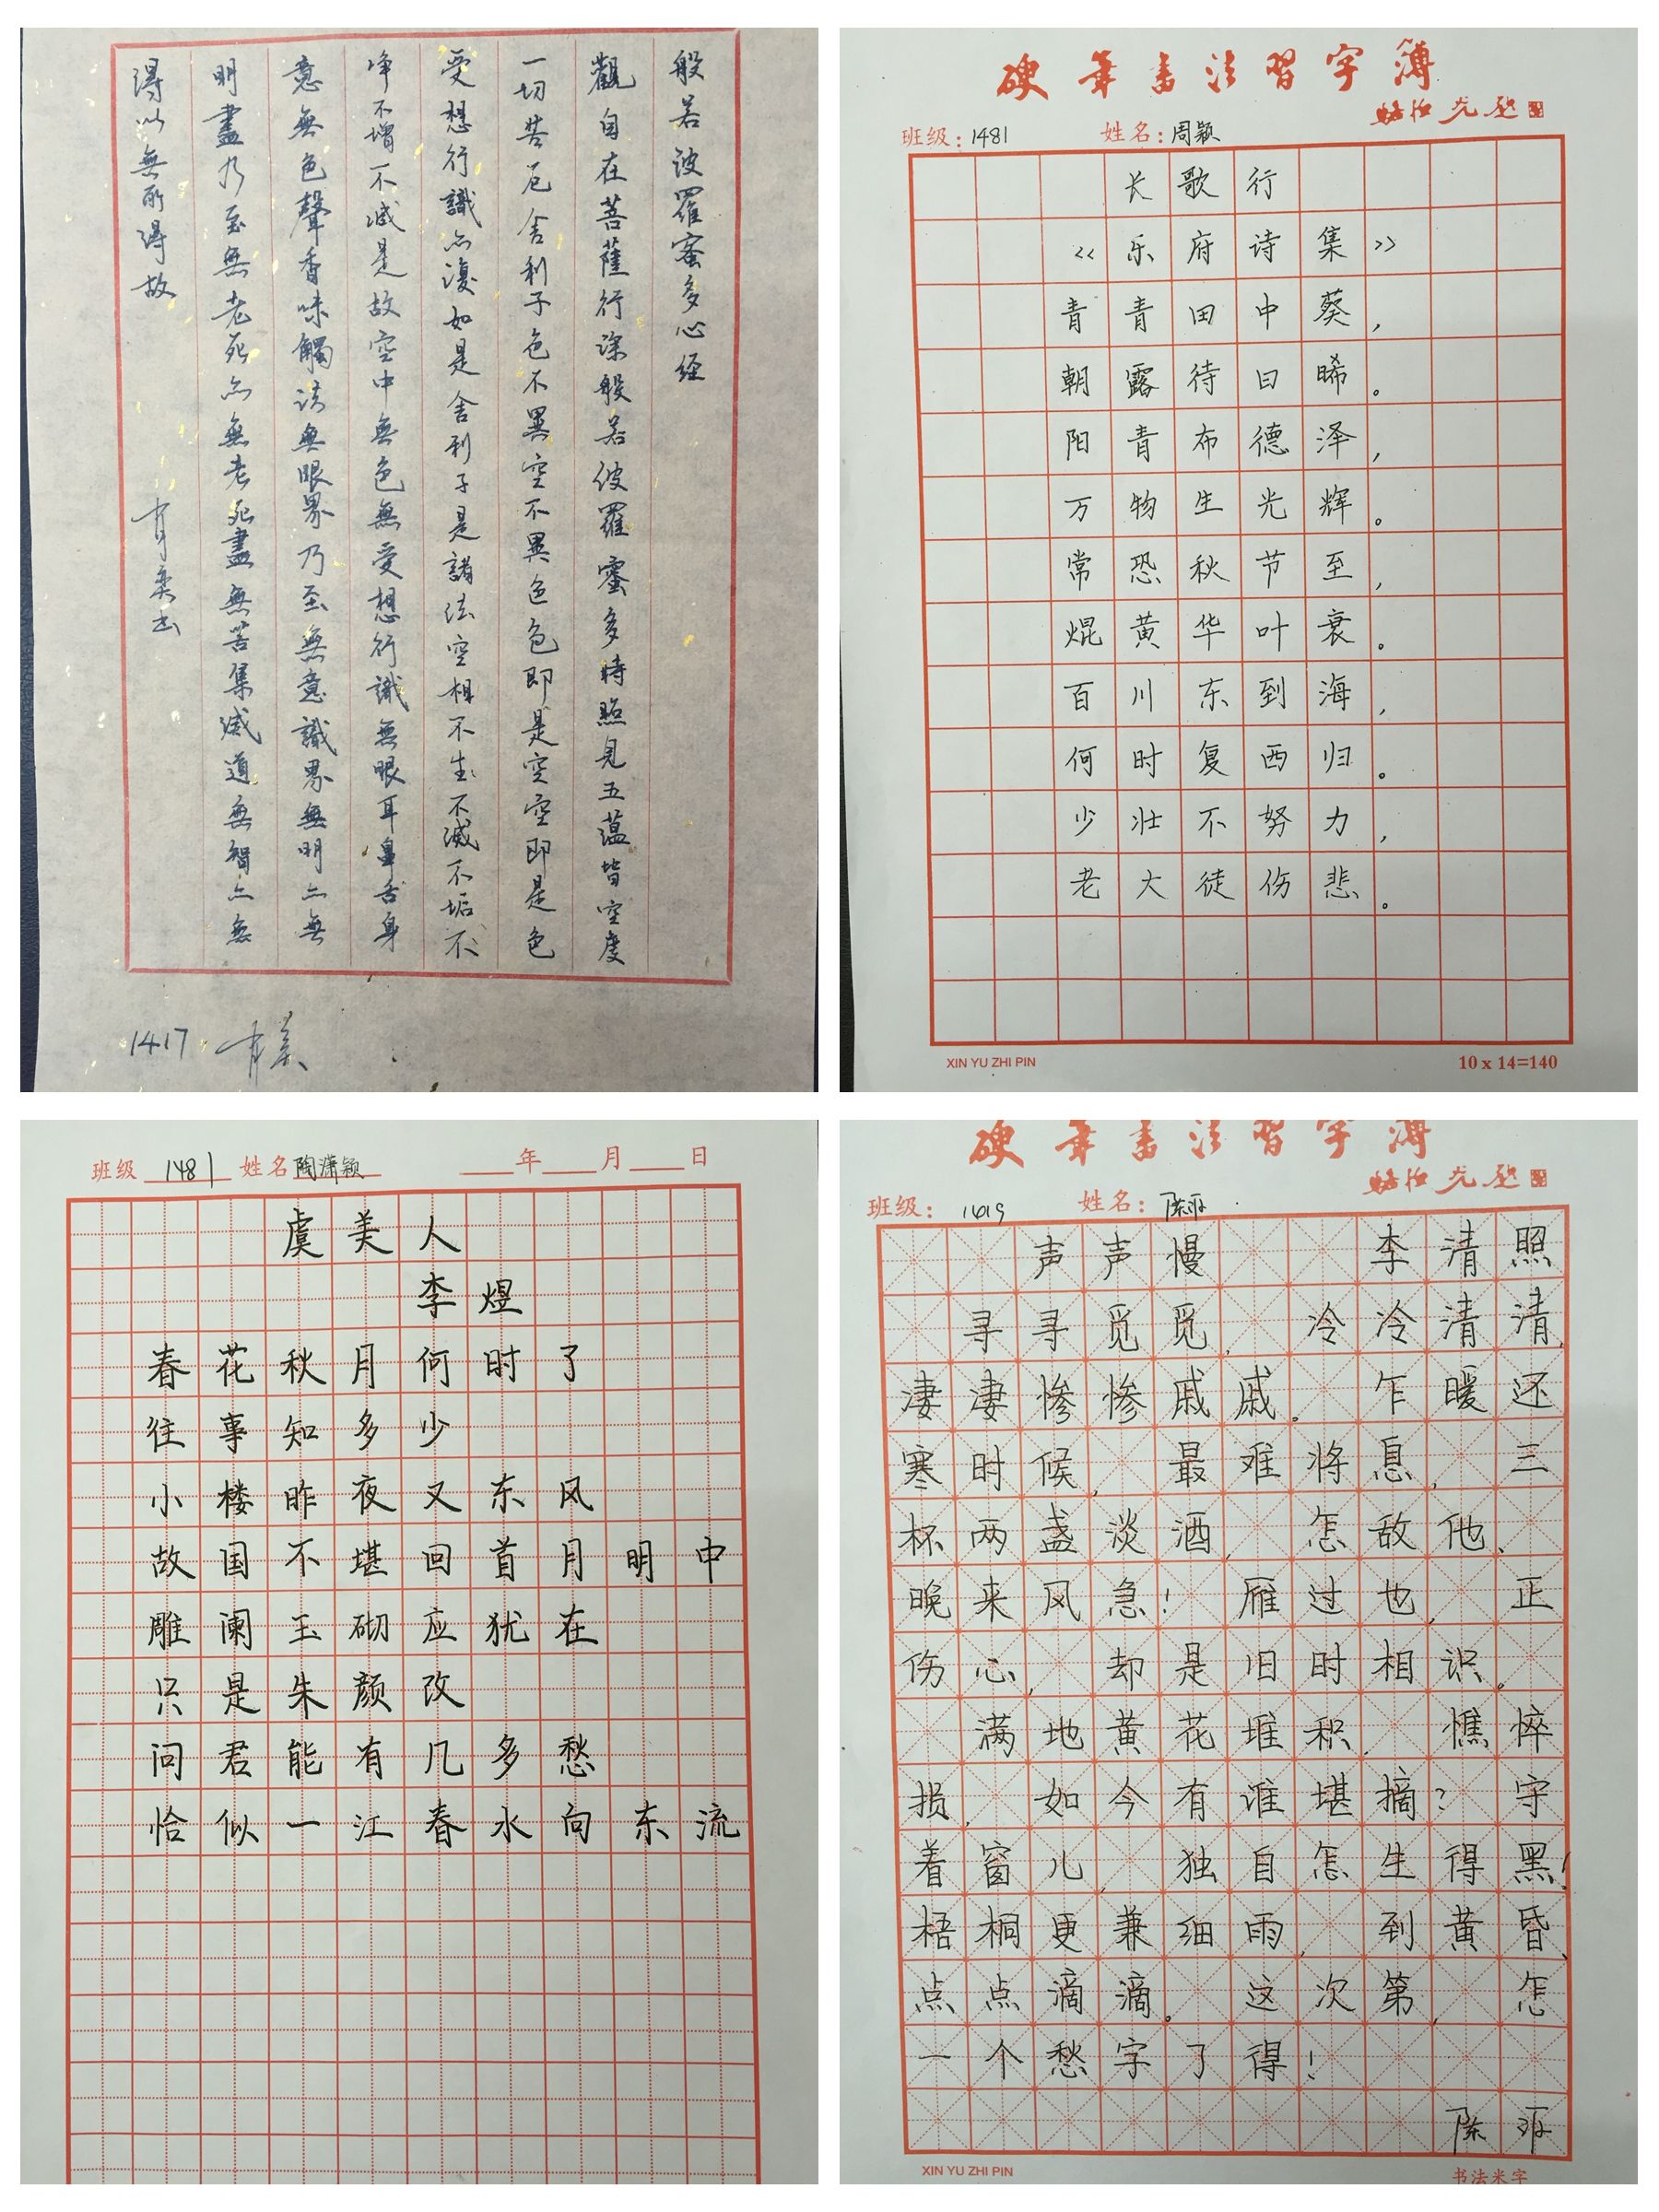 般若波羅蜜多心经
觀自在菩薩行深般若波羅蜜多時照見五蕴皆空度
一切苦厄舍利子色不異空不異色色即是空空即是色
受想行識亦復如是舍利子是諸法空相不生不滅不垢不
净不增不减是故空中無色無受想行識無眼耳鼻舌身
意無色聲香味觸法無眼界乃至無意識界無明亦無
明盡乃至無老死亦無老死盡無苦集滅道無智亦無
得以無所得故
1417
硬筆書法習字簿
班级：1481 姓名：周颖
长歌行
《乐府诗集》
青青田中葵，
朝露待日晞。
阳青布德泽，
万物生光辉。
常恐秋节至，
焜黄华叶衰。
百川东到海，
何时复西归。
少壮不努力，
老大徒伤悲。
XIN YU ZHI PIN 10 x 14=140
班级 1481 姓名 陶潇颖 年 月 日
虞美人
李煜
春花秋月何时了
往事知多少
小楼昨夜又东风
故国不堪回首月明中
雕阑玉砌应犹在
只是朱颜改
问君能有几多愁
恰似一江春水向东流
硬筆書法習字簿
班级：1419 姓名：陈
声声慢 李清照
寻寻觅觅，冷冷清清，
凄凄惨惨戚戚。乍暖还
寒时候，最难将息，三
杯两盏淡酒，怎敌他、
晚来风急！雁过也，正
伤心，却是旧时相识。
满地黄花堆积，憔悴
损，如今有谁堪摘？守
着窗儿，独自怎生得黑！
梧桐更兼细雨，到黄昏、
点点滴滴。这次第，怎
一个愁字了得！
陈
XIN YU ZHI PIN 书法米字